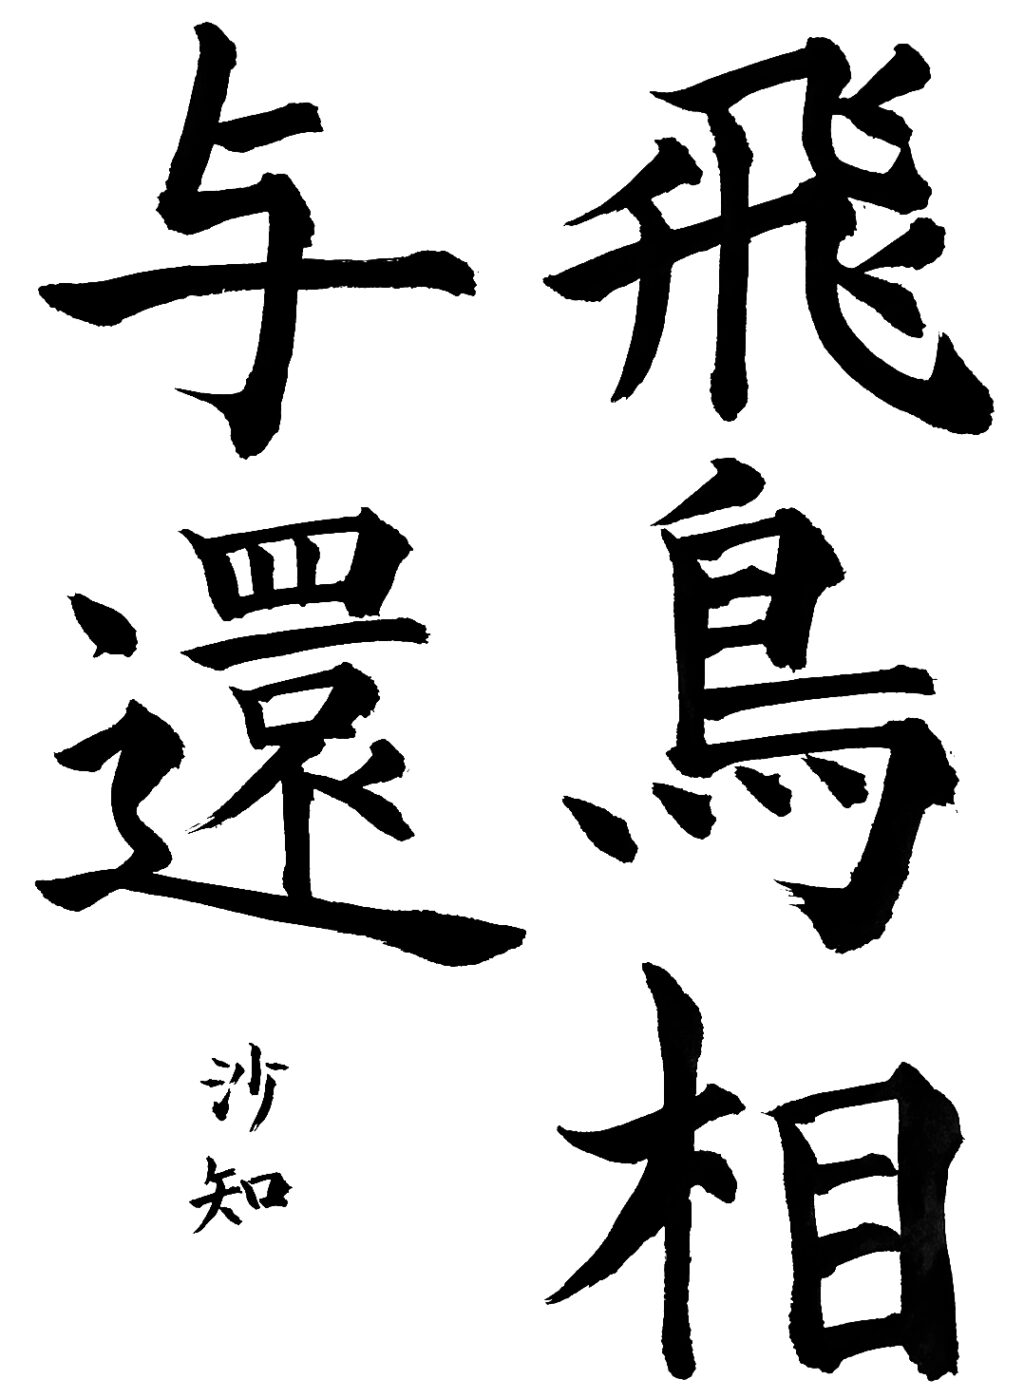 飛鳥相
与還
沙知